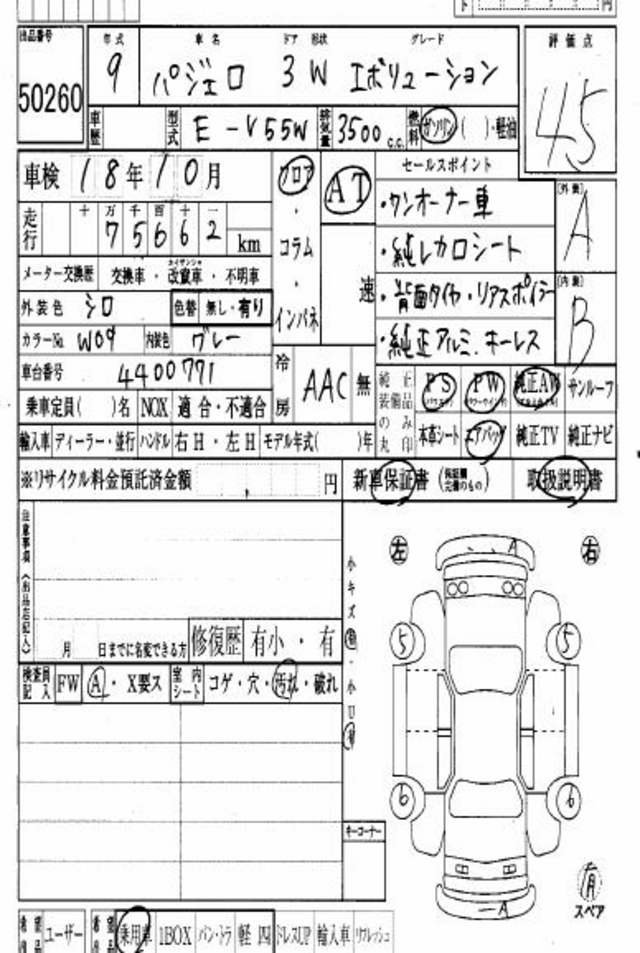 円
出品番号 年式 車名 ドア 形状 グレード 評価点
50260 9 パジェロ 3W エボリューション 4.5
車歴 型式 E-V55W 排気量 3500 c.c. 燃料 ガソリン( )・軽油
車検 18年10月 フロア・コラム・インパネ AT 速 セールスポイント
・ワンオーナー車 〔外装〕 A
走行 十 万 千 百 十 一
75662 km
・純レカロシート
メーター交換歴 交換車・改竄車・不明車
・背面タイヤ・リアスポイラー 〔内装〕 B
外装色 シロ 色替 無し・有り
・純正アルミ.キーレス
カラーNo. W09 内装色 グレー
車台番号 4400771 冷房 AAC 無
純正装備品のみ丸印 PS PW 純正AW サンルーフ
乗車定員( )名 NOX 適合・不適合
本革シート エアバッグ 純正TV 純正ナビ
輸入車 ディーラー・並行 ハンドル 右H・左H モデル年式( )年
※リサイクル料金預託済金額 , 円 新車保証書 取扱説明書
注意事項(出品店記入)
左 右
A
小キズ
月 日までに名変できる方 修復歴 有小・有
5 5
検査員記入 FW A・X要ス 室内シート コゲ・穴・汚れ・破れ
・小U
6 6
キーコーナー
有
スペア
A
ユーザー 乗用車 1BOX バン・トラ 軽四 ドレスUP 輸入車 リフレッシュ